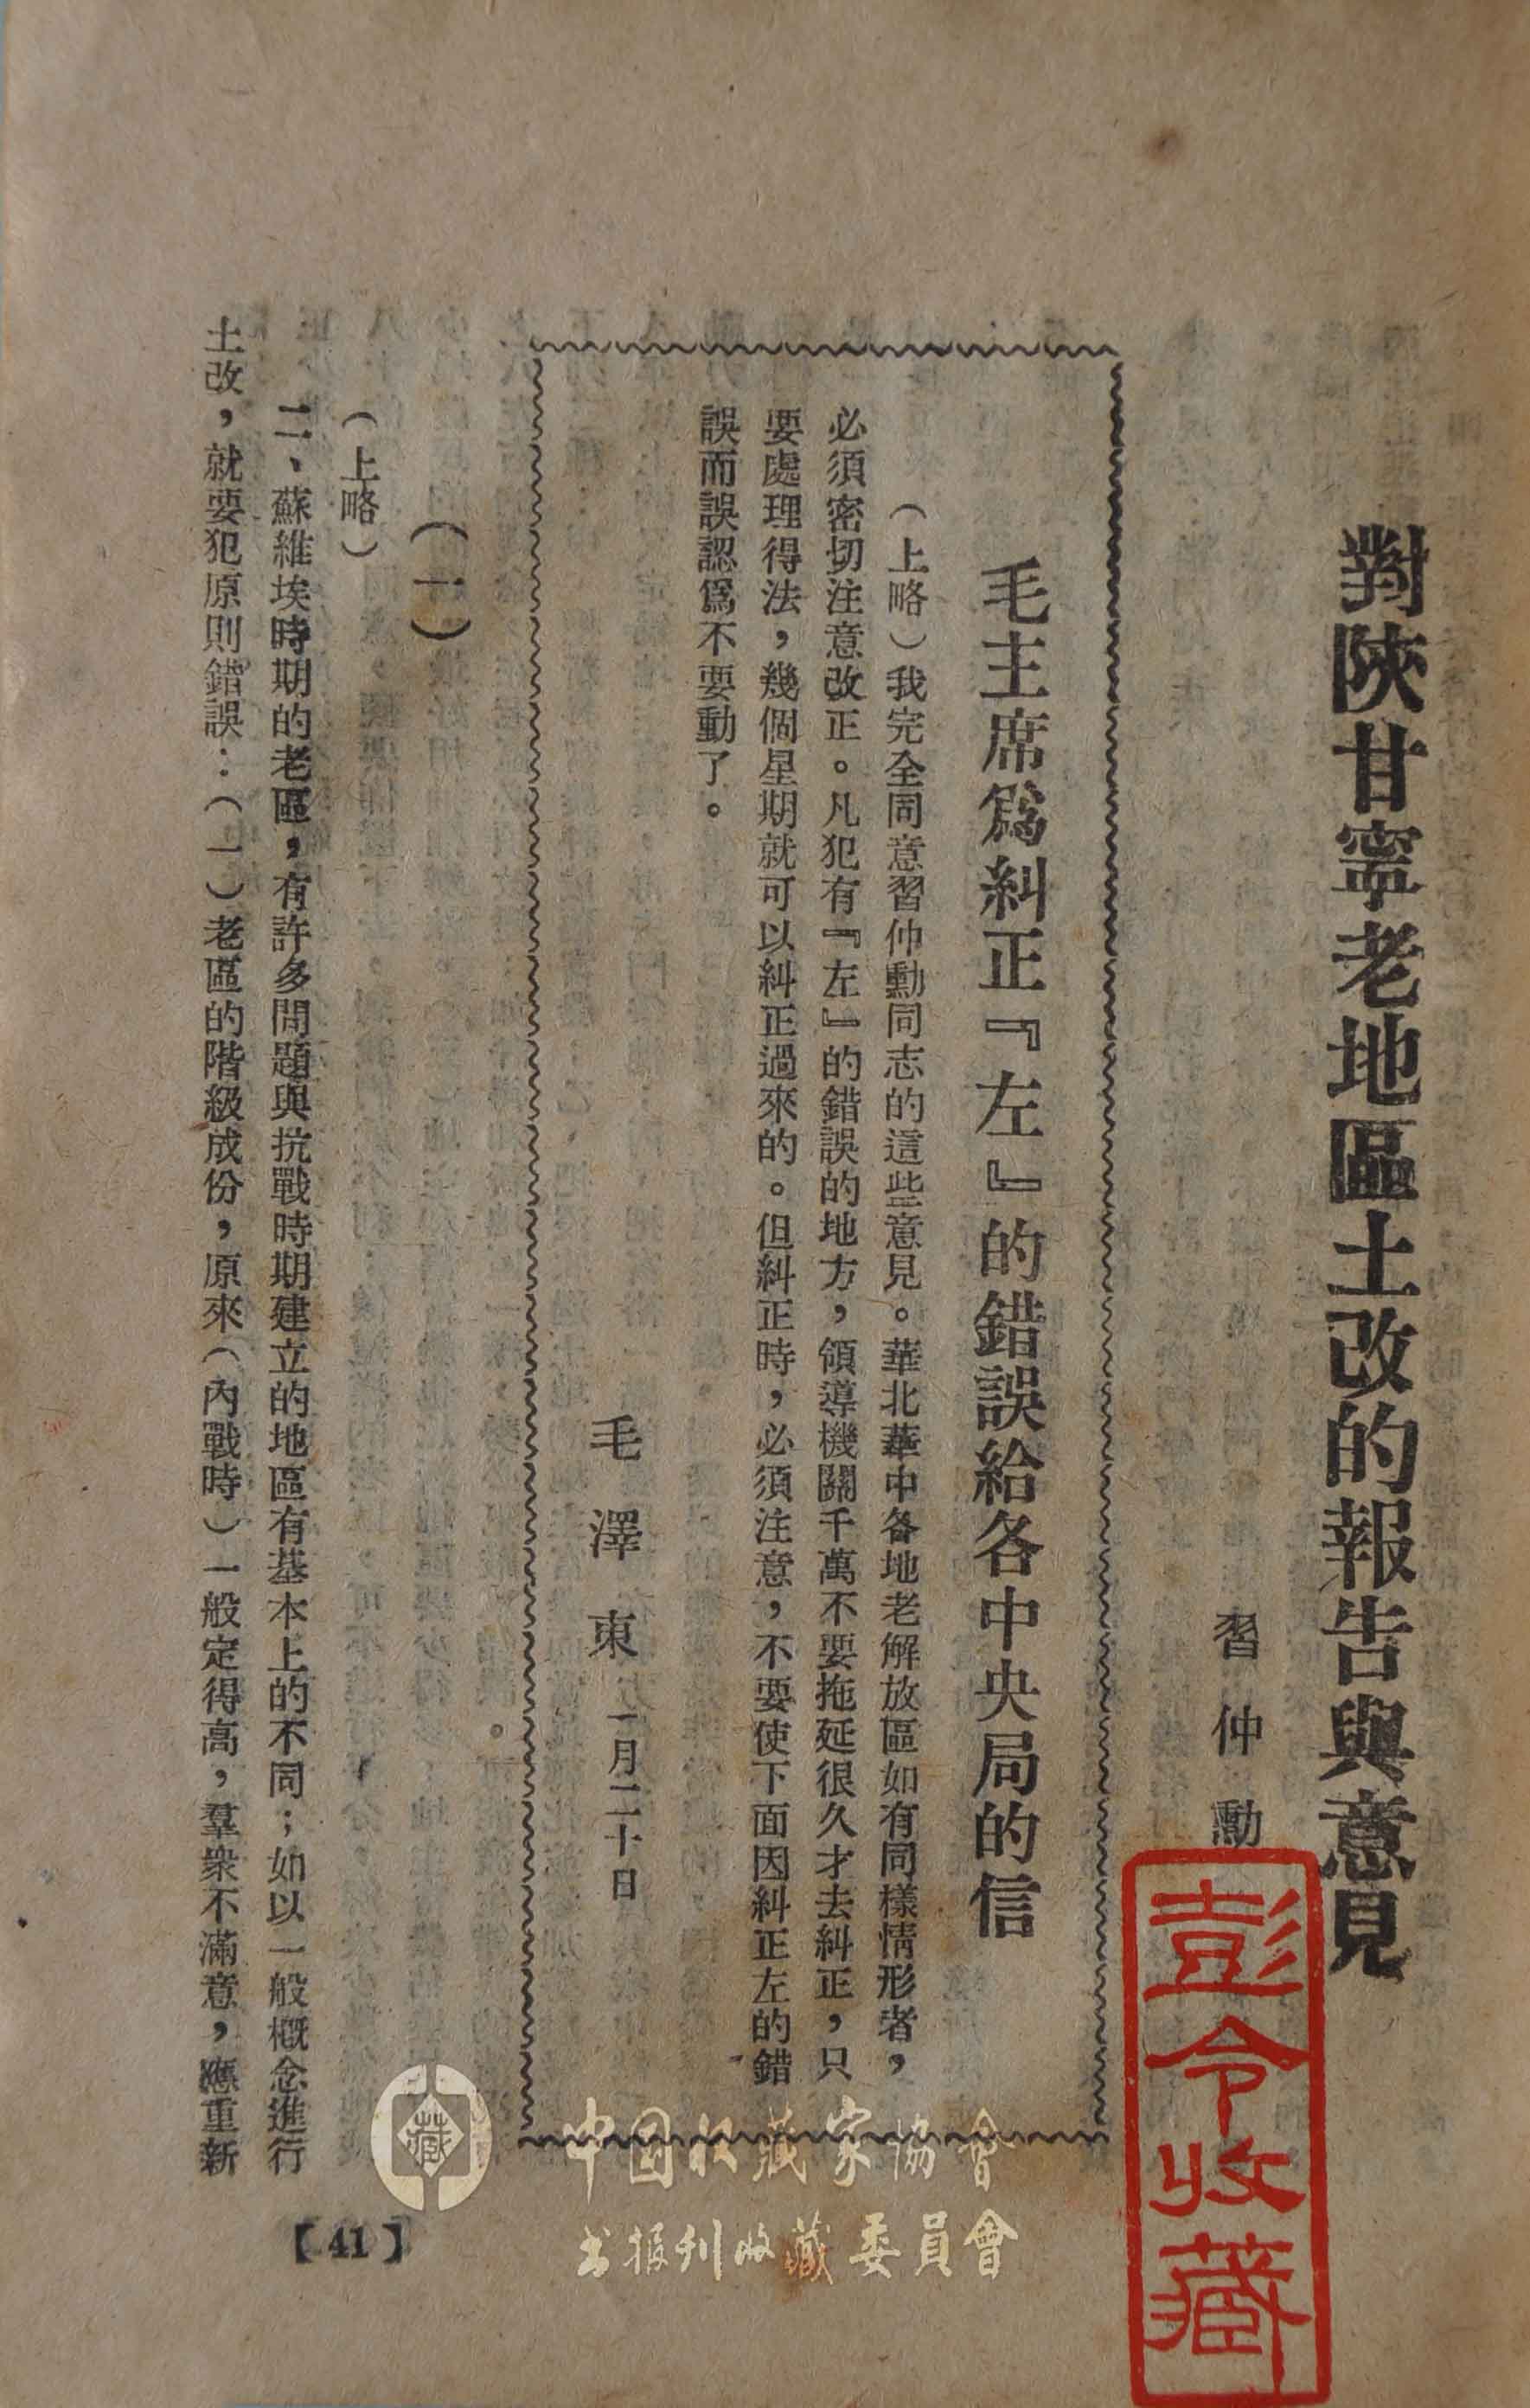 對陝甘寧老地區土改的報告與意見
習仲勳
毛主席爲糾正『左』的錯誤給各中央局的信
（上略）我完全同意習仲勳同志的這些意見。華北華中各地老解放區如有同樣情形者，
必須密切注意改正。凡犯有『左』的錯誤的地方，領導機關千萬不要拖延很久才去糾正，只
要處理得法，幾個星期就可以糾正過來的。但糾正時，必須注意，不要使下面因糾正左的錯
誤而誤認爲不要動了。
毛澤東 一月二十日
（一）
（上略）
二、蘇維埃時期的老區，有許多問題與抗戰時期建立的地區有基本上的不同；如以一般概念進行
土改，就要犯原則錯誤：（一）老區的階級成份，原來（內戰時）一般定得高，羣衆不滿意，應重新
【41】
彭令收藏
藏
中国收藏家協會
书报刊收藏委員會